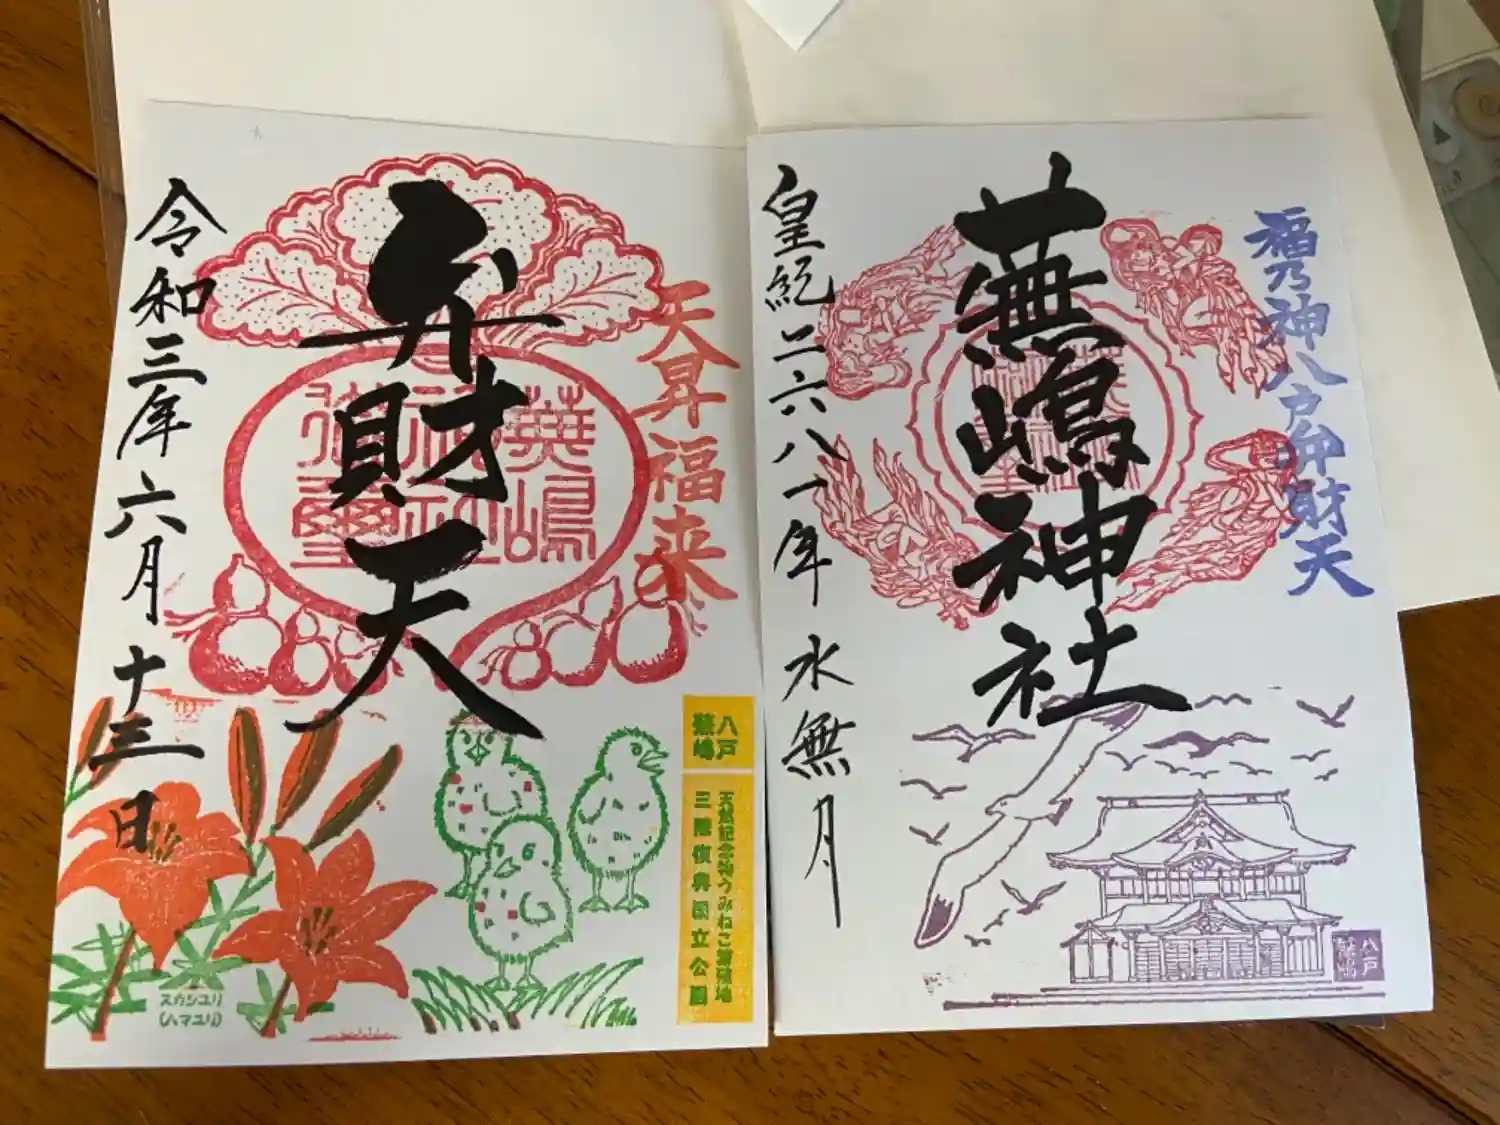 皇紀二六八一年 水無月
蕪嶋神社
福乃神八戸弁財天
八戸
蕪嶋
令和三年六月十三日
弁財天
天昇福来
蕪嶋
神社
八戸
蕪嶋
天然記念物うみねこ繁殖地
三陸復興国立公園
スカシユリ
(ハマユリ)